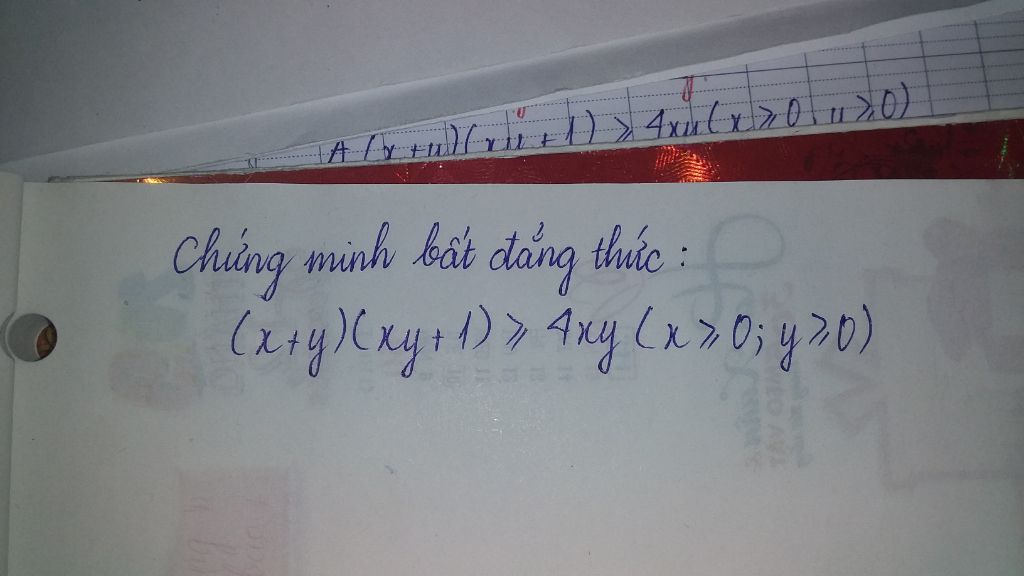 A (x+y)(xy+1) ≥ 4xy (x ≥ 0, y ≥ 0)
Chứng minh bất đẳng thức :
(x+y)(xy+1) ≥ 4xy (x ≥ 0; y ≥ 0)